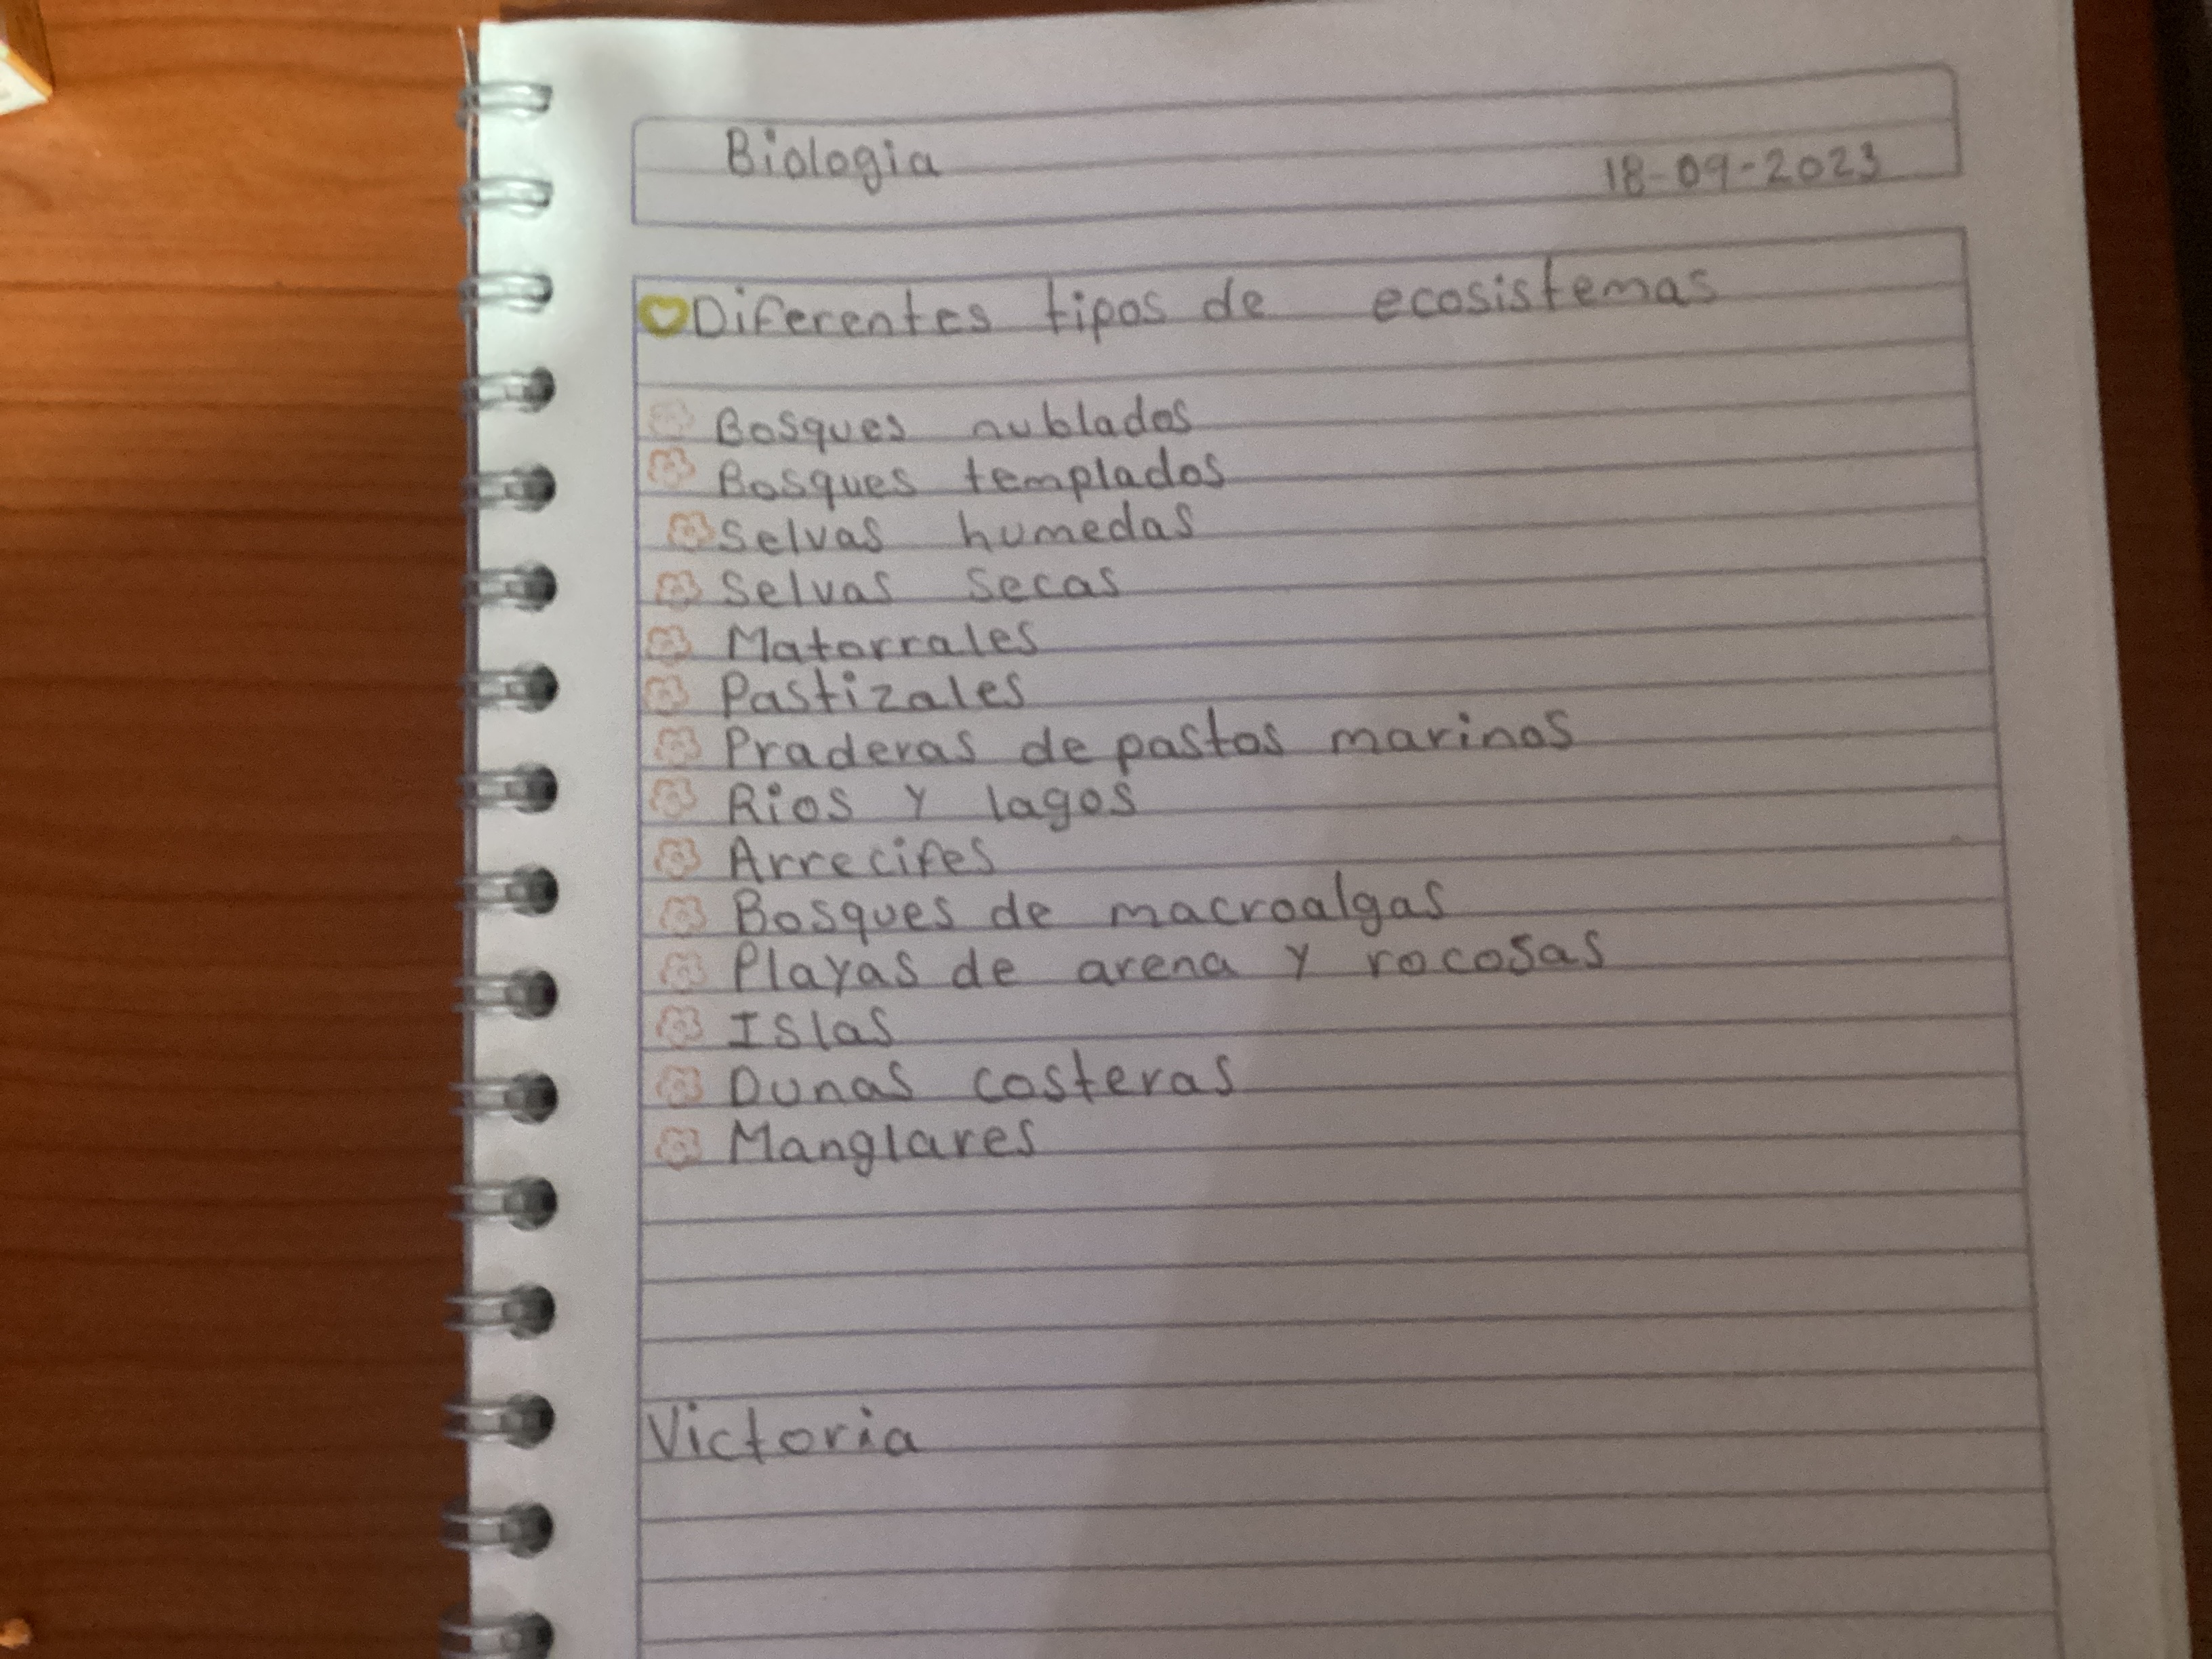 Biologia
18-09-2023
Diferentes tipos de ecosistemas
Bosques nublados
Bosques templados
Selvas humedas
Selvas secas
Matorrales
Pastizales
Praderas de pastos marinos
Rios y lagos
Arrecifes
Bosques de macroalgas
Playas de arena y rocosas
Islas
Dunas costeras
Manglares
Victoria